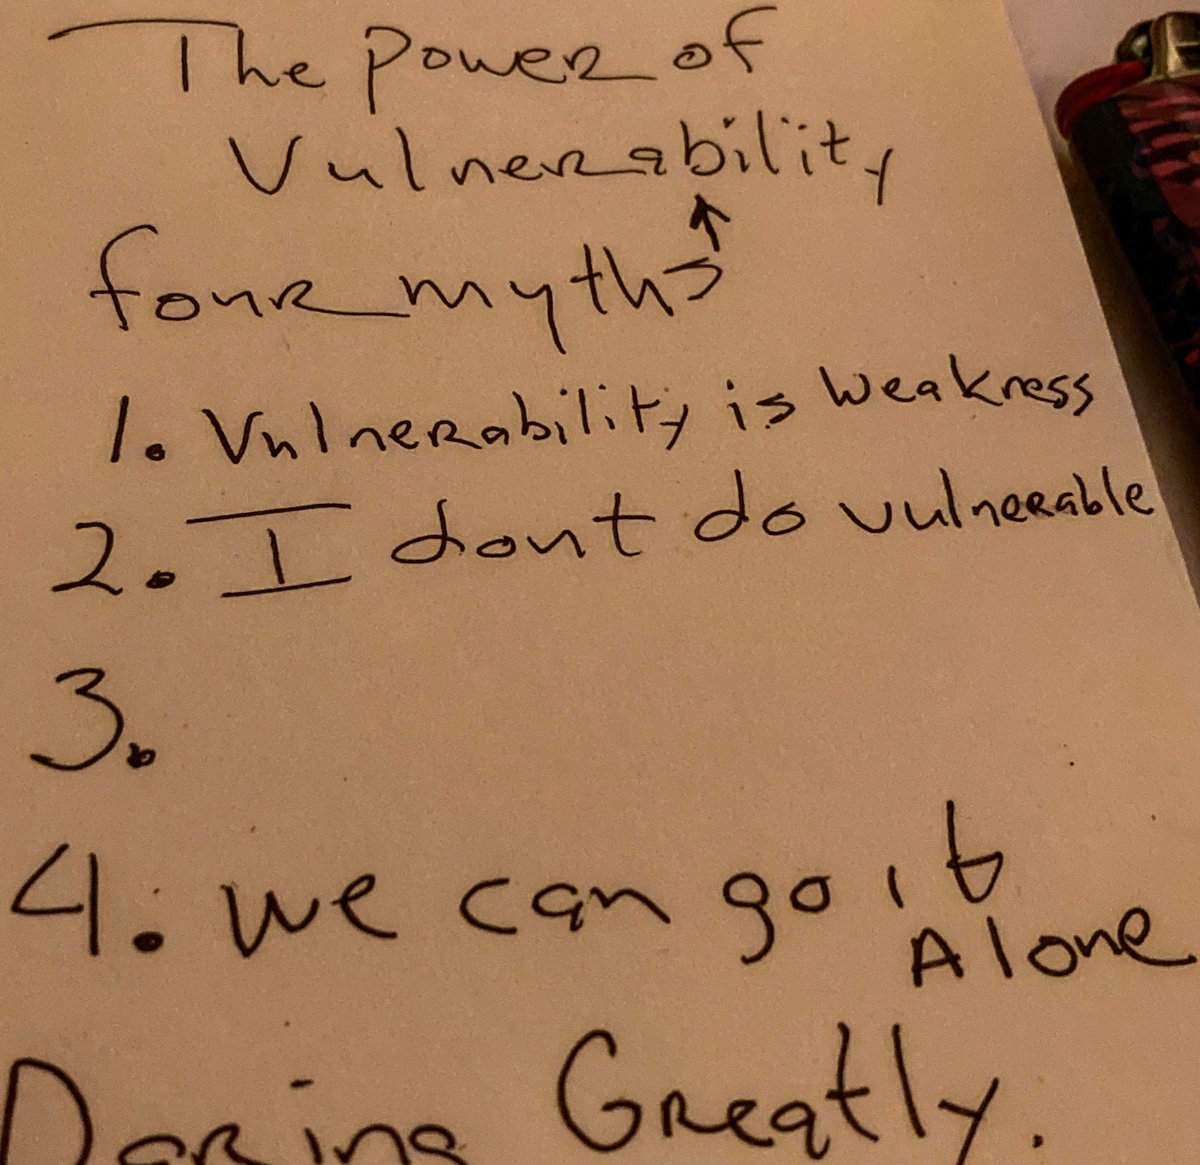 The power of
Vulnerability
four myths
1. Vulnerability is weakness
2. I dont do vulnerable
3.
4. we can go it
Alone
Daring Greatly.